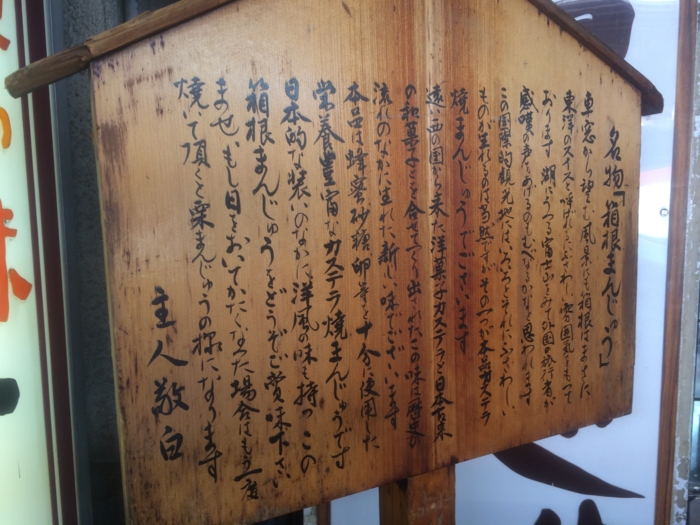 名物「箱根まんじゅう」
車窓から望む風景にも箱根はまさに
東洋のスイスと呼ばれるにふさわしい
おります 湖にうつる富士山をみて外国の旅行者が
感嘆の声をあげるのもむべなるかなと思われます
この国際的観光地にはいろいろとそれにふさわしい
ものが生れるのは当然ですがその一つが本品カステラ
焼まんじゅうでございます
遠い西の国から来た洋菓子カステラと日本古来
の和菓子とを合せてつくり出されたこの味は歴史の
流れのなかに生れた新しい味でございます
本品は蜂蜜砂糖卵等を十分に使用した
栄養豊富なカステラ焼まんじゅうです
日本的な装いのなかに洋風の味を持つこの
箱根まんじゅうをどうぞご賞味下さい
ませ もし日をおいてかたくなった場合はもう一度
焼いて頂くと栗まんじゅうの様になります
主人敬白
の
味